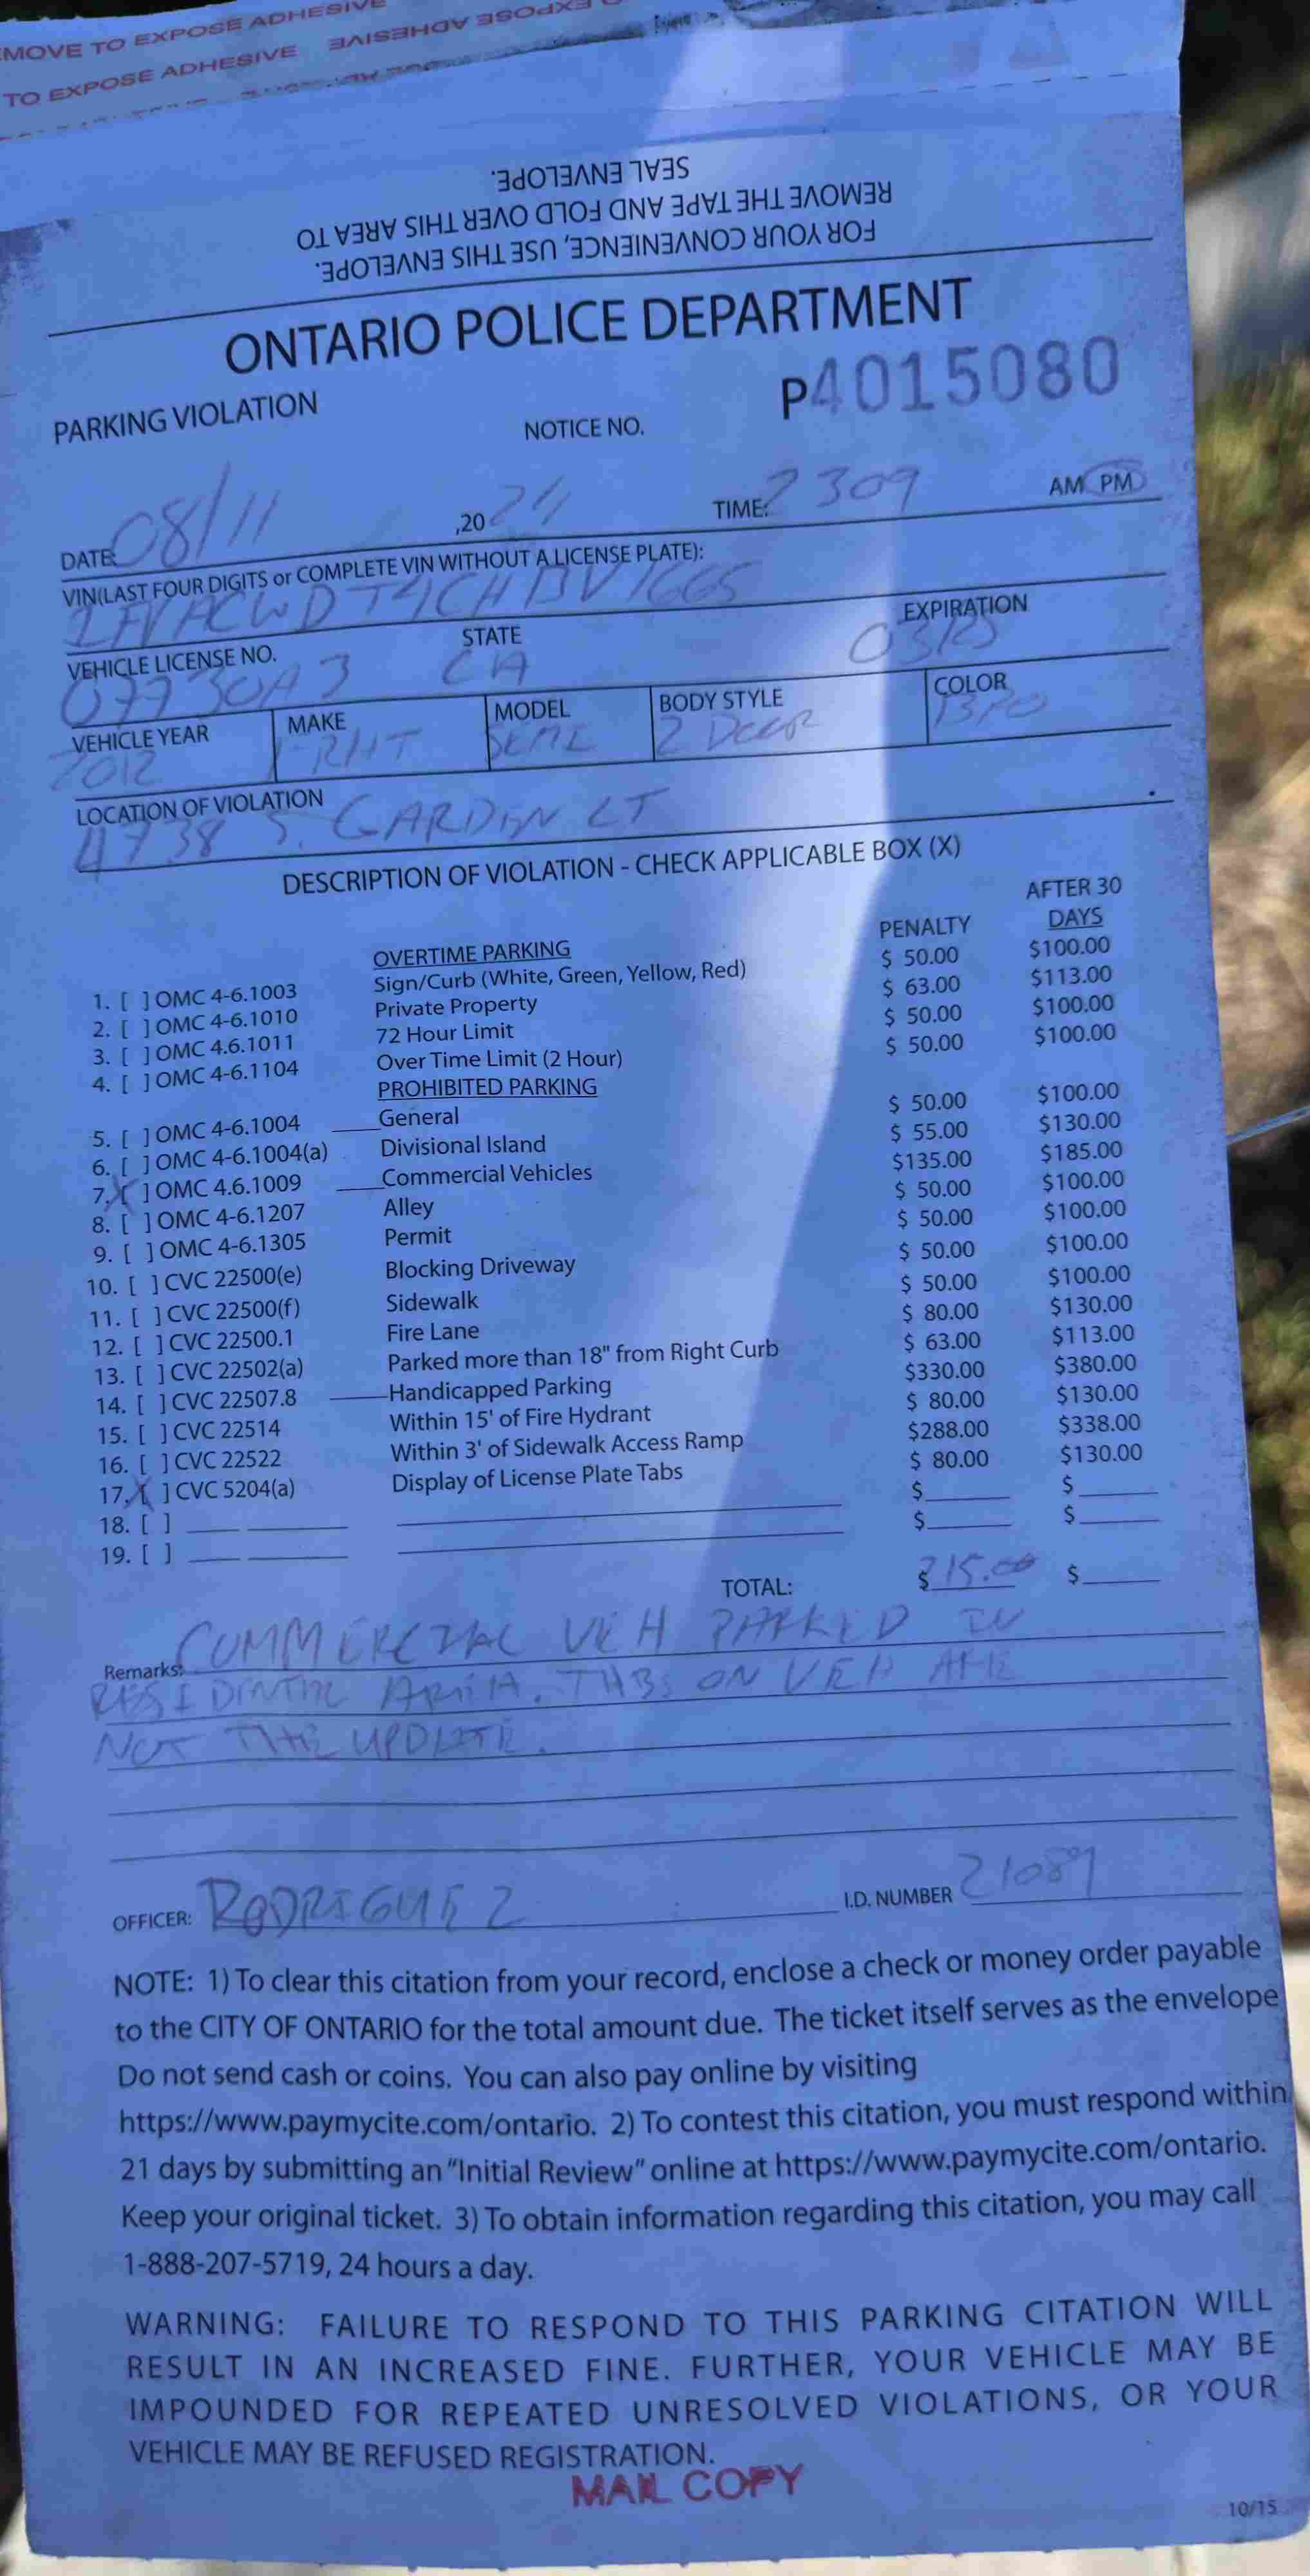 MOVE TO EXPOSE ADHESIVE
TO EXPOSE ADHESIVE EXPOSE ADHESIVE
FOR YOUR CONVENIENCE, USE THIS ENVELOPE.
REMOVE THE TAPE AND FOLD OVER THIS AREA TO
SEAL ENVELOPE.
ONTARIO POLICE DEPARTMENT
PARKING VIOLATION NOTICE NO. P4015080
DATE: 08/11 ,20 24 TIME: 2309 AM PM
VIN(LAST FOUR DIGITS or COMPLETE VIN WITHOUT A LICENSE PLATE):
VEHICLE LICENSE NO. STATE EXPIRATION
07730A3 CA
VEHICLE YEAR MAKE MODEL BODY STYLE COLOR
2012 FRHT SEMI 2 DOOR
LOCATION OF VIOLATION
4738 S. GARDEN CT
DESCRIPTION OF VIOLATION - CHECK APPLICABLE BOX (X)
PENALTY AFTER 30 DAYS
OVERTIME PARKING
1. [ ] OMC 4-6.1003 Sign/Curb (White, Green, Yellow, Red) $ 50.00 $100.00
2. [ ] OMC 4-6.1010 Private Property $ 63.00 $113.00
3. [ ] OMC 4.6.1011 72 Hour Limit $ 50.00 $100.00
4. [ ] OMC 4-6.1104 Over Time Limit (2 Hour) $ 50.00 $100.00
PROHIBITED PARKING
5. [ ] OMC 4-6.1004 ____General $ 50.00 $100.00
6. [ ] OMC 4-6.1004(a) Divisional Island $ 55.00 $130.00
7. [X] OMC 4.6.1009 ____Commercial Vehicles $135.00 $185.00
8. [ ] OMC 4-6.1207 Alley $ 50.00 $100.00
9. [ ] OMC 4-6.1305 Permit $ 50.00 $100.00
10. [ ] CVC 22500(e) Blocking Driveway $ 50.00 $100.00
11. [ ] CVC 22500(f) Sidewalk $ 50.00 $100.00
12. [ ] CVC 22500.1 Fire Lane $ 80.00 $130.00
13. [ ] CVC 22502(a) Parked more than 18" from Right Curb $ 63.00 $113.00
14. [ ] CVC 22507.8 ____Handicapped Parking $330.00 $380.00
15. [ ] CVC 22514 Within 15' of Fire Hydrant $ 80.00 $130.00
16. [ ] CVC 22522 Within 3' of Sidewalk Access Ramp $288.00 $338.00
17. [X] CVC 5204(a) Display of License Plate Tabs $ 80.00 $130.00
18. [ ] $ $
19. [ ] $ $
TOTAL: $ 215.00 $
Remarks: COMMERCIAL VEH PARKED IN
RESIDENTIAL AREA. TABS ON VEH ARE
NOT
OFFICER: RODRIGUEZ I.D. NUMBER 21089
NOTE: 1) To clear this citation from your record, enclose a check or money order payable
to the CITY OF ONTARIO for the total amount due. The ticket itself serves as the envelope
Do not send cash or coins. You can also pay online by visiting
https://www.paymycite.com/ontario. 2) To contest this citation, you must respond within
21 days by submitting an "Initial Review" online at https://www.paymycite.com/ontario.
Keep your original ticket. 3) To obtain information regarding this citation, you may call
1-888-207-5719, 24 hours a day.
WARNING: FAILURE TO RESPOND TO THIS PARKING CITATION WILL
RESULT IN AN INCREASED FINE. FURTHER, YOUR VEHICLE MAY BE
IMPOUNDED FOR REPEATED UNRESOLVED VIOLATIONS, OR YOUR
VEHICLE MAY BE REFUSED REGISTRATION.
MAIL COPY
10/15